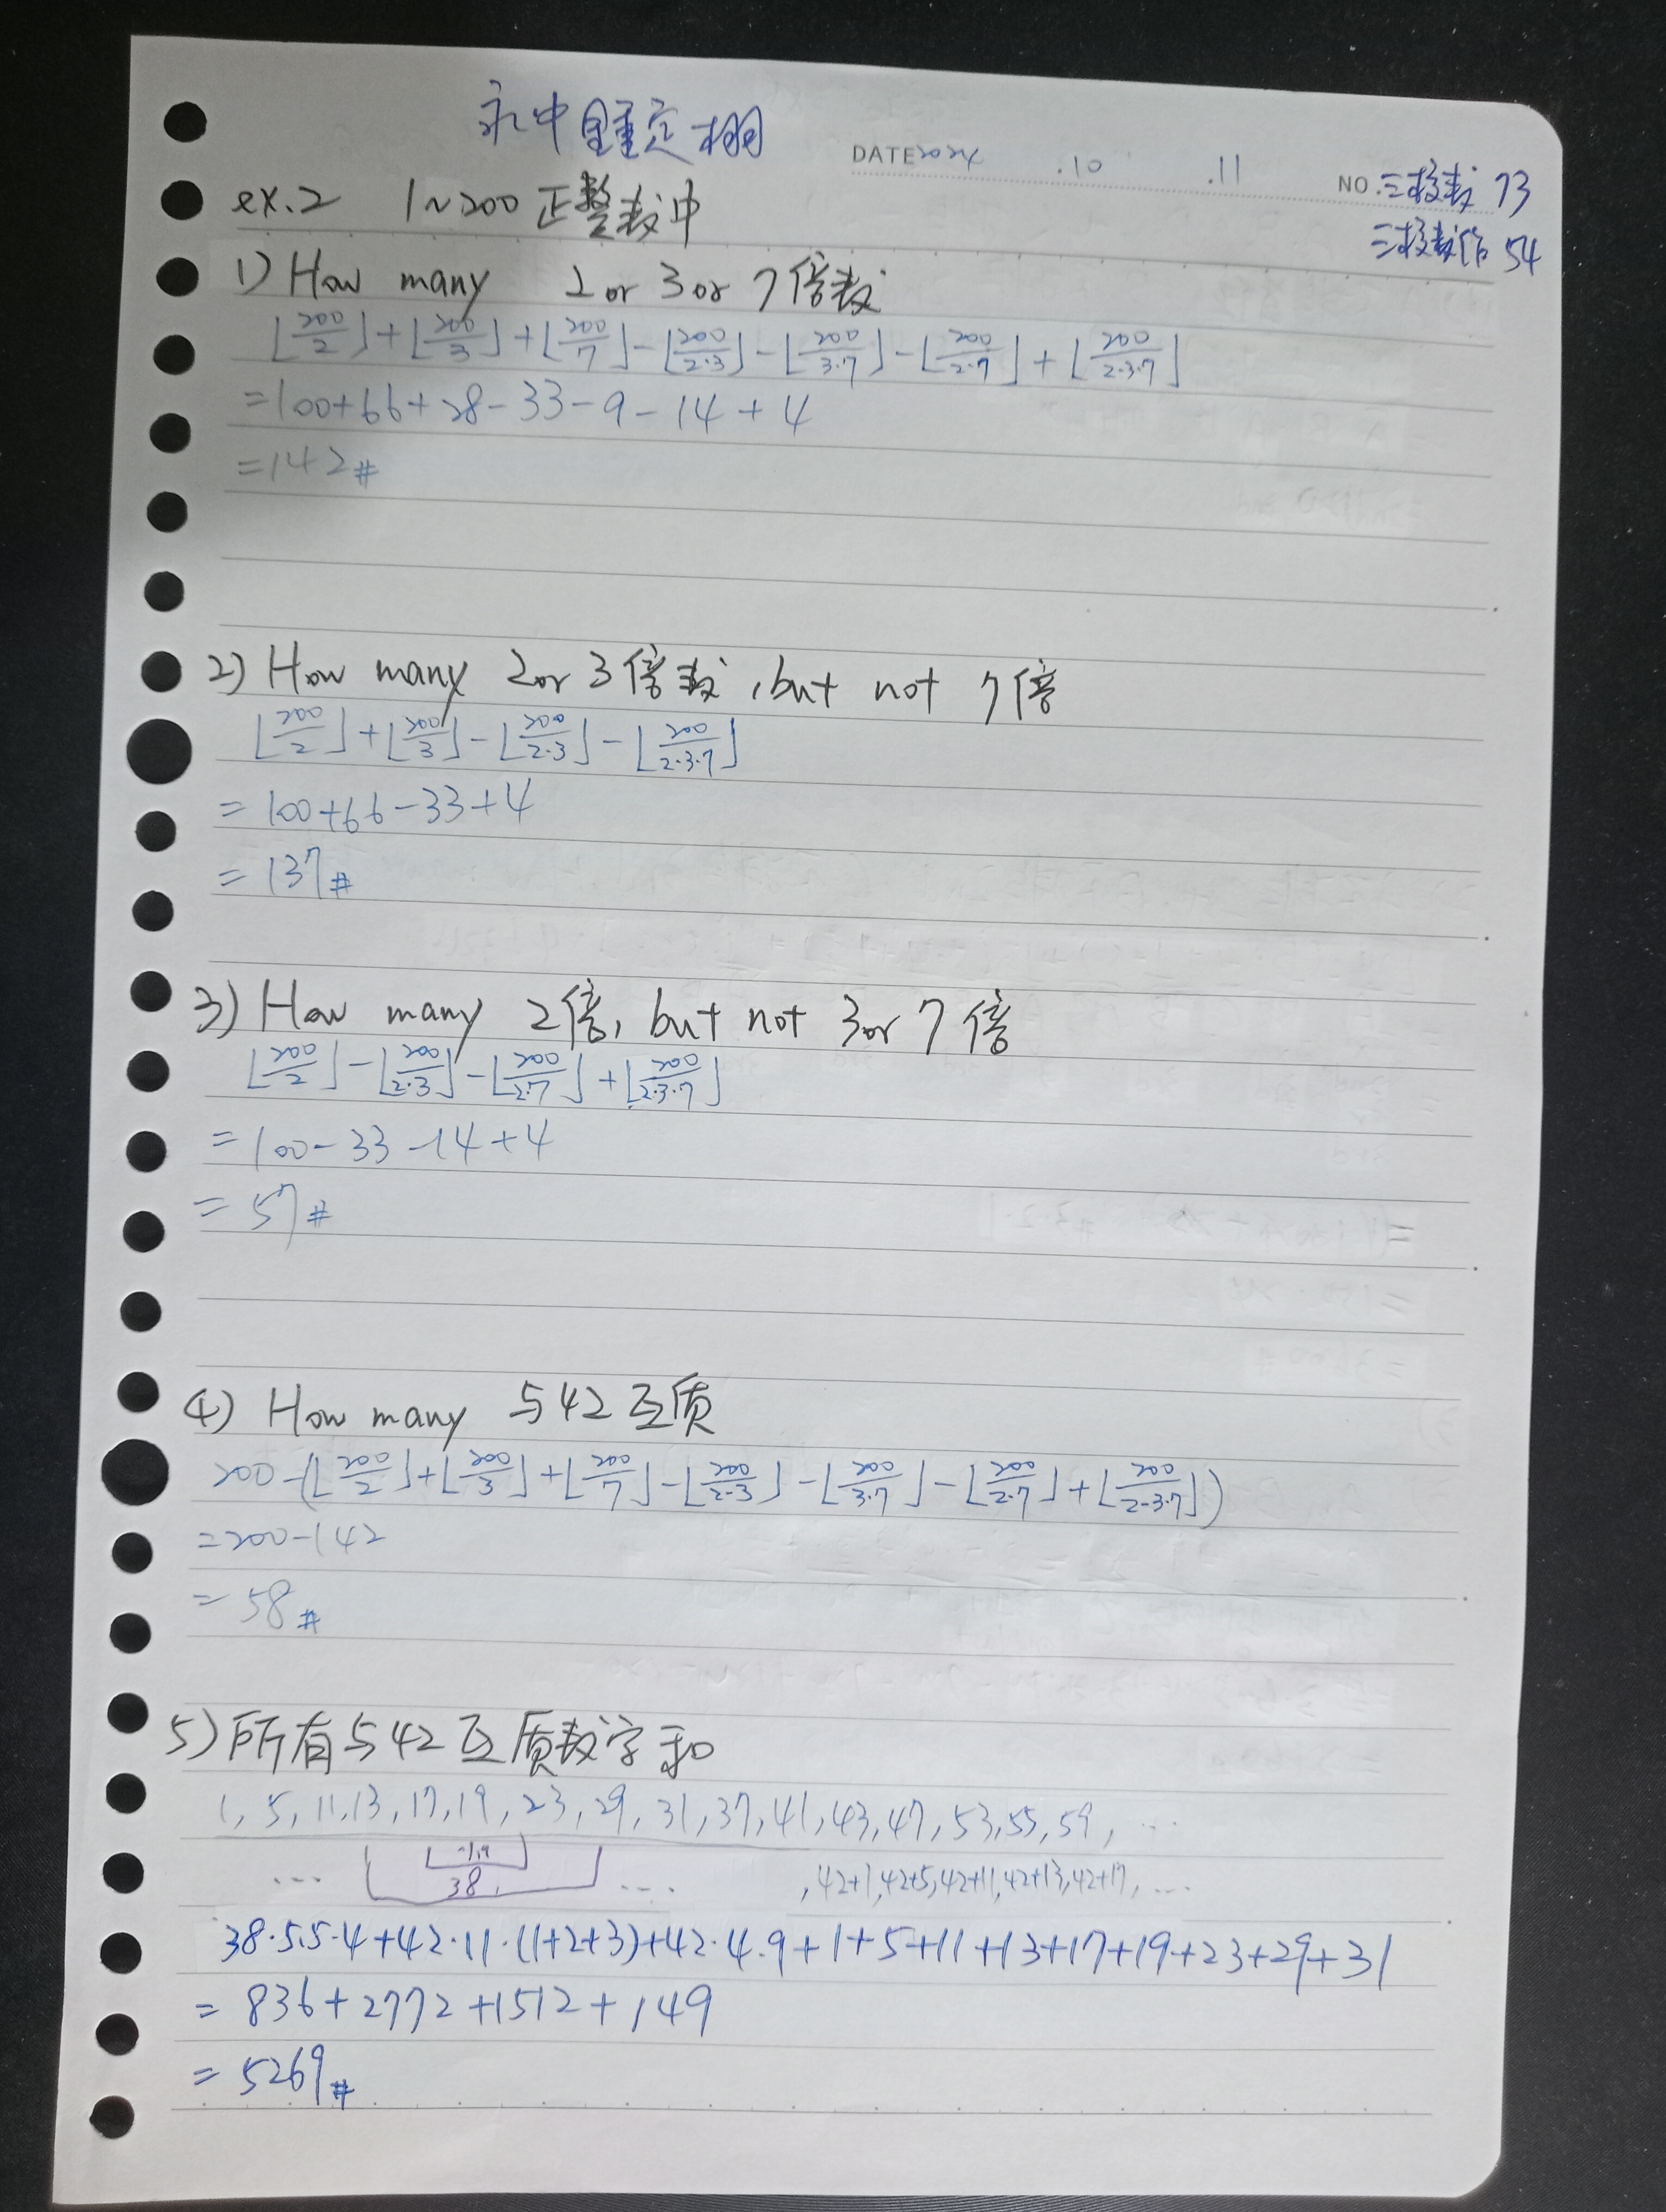 永中鍾定棚
DATE 2024 .10 .11 NO. 三移表 73
ex.2 1~200 正整数中
1) How many 2 or 3 or 7 倍数
⌊200/2⌋+⌊200/3⌋+⌊200/7⌋-⌊200/2·3⌋-⌊200/3·7⌋-⌊200/2·7⌋+⌊200/2·3·7⌋
=100+66+28-33-9-14+4
=142#
2) How many 2 or 3 倍数, but not 7 倍
⌊200/2⌋+⌊200/3⌋-⌊200/2·3⌋-⌊200/2·3·7⌋
=100+66-33+4
=137#
3) How many 2倍, but not 3 or 7 倍
⌊200/2⌋-⌊200/2·3⌋-⌊200/2·7⌋+⌊200/2·3·7⌋
=100-33-14+4
=57#
4) How many 与42互质
200-(⌊200/2⌋+⌊200/3⌋+⌊200/7⌋-⌊200/2·3⌋-⌊200/3·7⌋-⌊200/2·7⌋+⌊200/2·3·7⌋)
=200-142
=58#
5) 所有与42互质数字和
1, 5, 11, 13, 17, 19, 23, 29, 31, 37, 41, 43, 47, 53, 55, 59, ...
... 38 ... , 42+1, 42+5, 42+11, 42+13, 42+17, ...
38·5.5·4+42·11·(1+2+3)+42·4·9+1+5+11+13+17+19+23+29+31
=836+2772+1512+149
=5269#